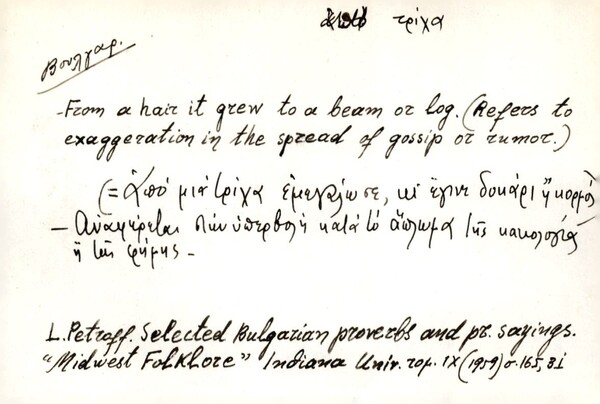 τρίχα
Βουλγαρ.
-From a hair it grew to a beam or log. (Refers to
exaggeration in the spread of gossip or rumor.)
(= Ἀπό μιά τρίχα ἐμεγάλωσε, κι ἔγινε δοκάρι ἤ κορμός
- Ἀναφέρεται στήν ὑπερβολή κατά τό ἅπλωμα τῆς κακολογίας
ἤ τῆς φήμης -
L. Petroff. Selected Bulgarian proverbs and pr. sayings.
"Midwest Folklore" Indiana Univ. τομ. IX (1959) σ. 165, 31